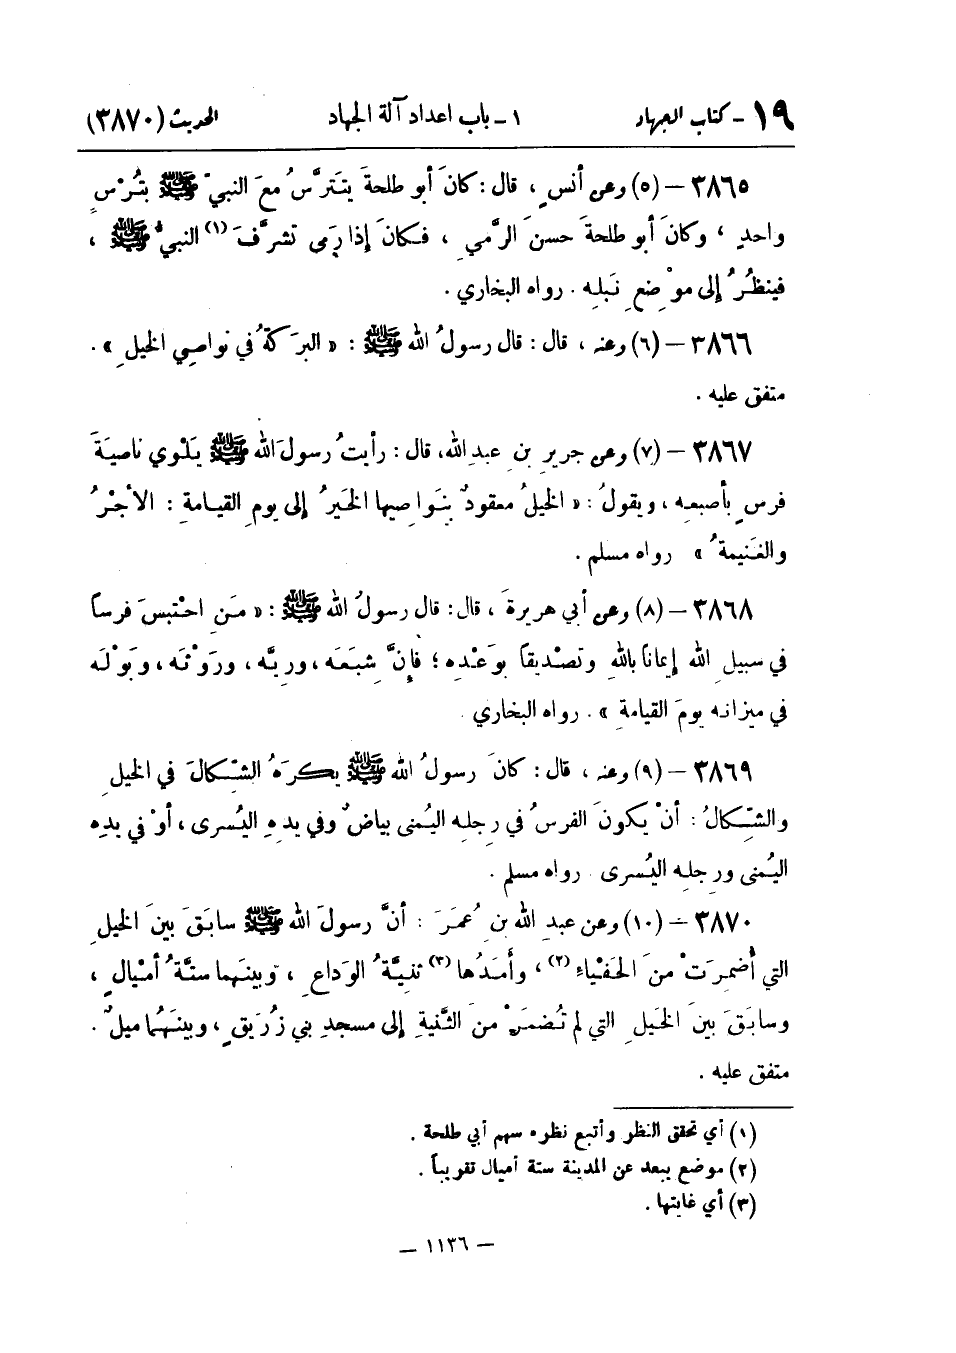 ١٩ - كتاب الجهاد ١ - باب اعداد آلة الجهاد الحديث (٣٨٧٠)
٣٨٦٥ - (٥) وعن أنسٍ ، قال : كانَ أبو طلحةَ يتَترَّسُ معَ النبيِّ ﷺ بتُرْسٍ
واحدٍ ، وكانَ أبو طلحةَ حسنَ الرَّميِ ، فكانَ إذا رَمى تشرَّفَ (١) النبيُّ ﷺ ،
فينظُرُ إلى موْضِعِ نَبلِه . رواه البخاري .
٣٨٦٦ - (٦) وعنه ، قال : قال رسولُ الله ﷺ : « البرَكةُ في نواصِي الخيلِ » .
متفق عليه .
٣٨٦٧ - (٧) وعن جريرِ بنِ عبدِ الله، قال : رأيتُ رسولَ الله ﷺ يَلْوي ناصيَةَ
فرسٍ بأصبعِه ، ويقولُ : « الخيلُ معقودٌ بنَواصِيها الخَيرُ إلى يومِ القيامةِ : الأجْرُ
والغَنيمةُ » رواه مسلم .
٣٨٦٨ - (٨) وعن أبي هريرةَ ، قال : قال رسولُ الله ﷺ : « مَنِ احْتبسَ فرساً
في سبيلِ الله إيماناً باللهِ وتصْديقاً بوَعْدِه ؛ فإنَّ شِبَعَه ، وريَّه ، ورَوْثَه ، وبَوْلَه
في ميزانه يومَ القيامةِ » . رواه البخاري .
٣٨٦٩ - (٩) وعنه ، قال : كانَ رسولُ الله ﷺ يكرَهُ الشِّكالَ في الخيلِ
والشِّكالُ : أنْ يكونَ الفرسُ في رِجلِه اليُمنى بياضٌ وفي يدهِ اليُسرى ، أوْ في يدِه
اليُمنى ورِجلِه اليُسرى . رواه مسلم .
٣٨٧٠ - (١٠) وعن عبدِ الله بنِ عُمَرَ : أنَّ رسولَ الله ﷺ سابَقَ بينَ الخيلِ
التي أُضمِرَتْ منَ الحَفْياءِ (٢) ، وأمَدُها (٣) ثنيَّةُ الوَداعِ ، وبينَهما ستَّةُ أميْالٍ ،
وسابَقَ بينَ الخَيلِ التي لم تُضمَرْ منَ الثَّنيةِ إلى مسجدِ بني زُرَيقٍ ، وبينَهُما ميلٌ .
متفق عليه .
(١) أي تحقق النظر وأتبع نظره سهم أبي طلحة .
(٢) موضع يبعد عن المدينة ستة أميال تقريباً .
(٣) أي غايتها .
— ١١٣٦ —